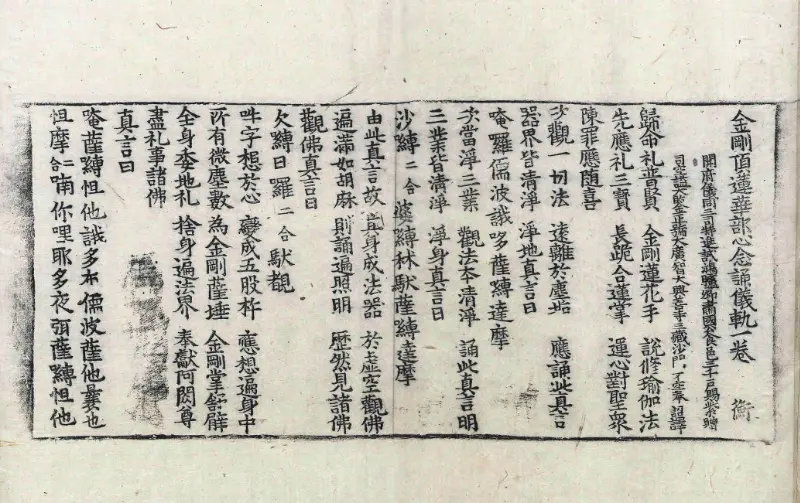 金剛頂蓮華部心念誦儀軌一卷 衡
開府儀同三司特進試鴻臚卿肅國公食邑三千戶賜紫贈
司空謚大鑒正號大廣智大興善寺三藏沙門不空奉 詔譯
歸命礼普賢 金剛蓮花手 說修瑜伽法
先應礼三寶 長跪合蓮掌 運心對聖衆
陳罪應随喜
次觀一切法 遠離於塵垢 應誦此真言
器界皆清淨 淨地真言曰
唵羅儒波誐哆薩縛達摩
次當淨三業 觀法本清淨 誦此真言明
三業皆清淨 淨身真言曰
沙縛二合婆縛秫馱薩縛達摩
由此真言故 當身成法器 於虛空觀佛
遍滿如胡麻 則誦遍照明 歷然見諸佛
觀佛真言曰
欠縛日羅二合馱覩
吽字想於心 變成五股杵 應想遍身中
所有微塵數 為金剛薩埵 金剛掌舒臂
全身委地礼 捨身遍法界 奉獻阿閦尊
盡礼事諸佛
真言曰
唵薩縛怛他誐多布儒波薩他曩也
怛摩二合喃你哩耶多夜弭薩縛怛他